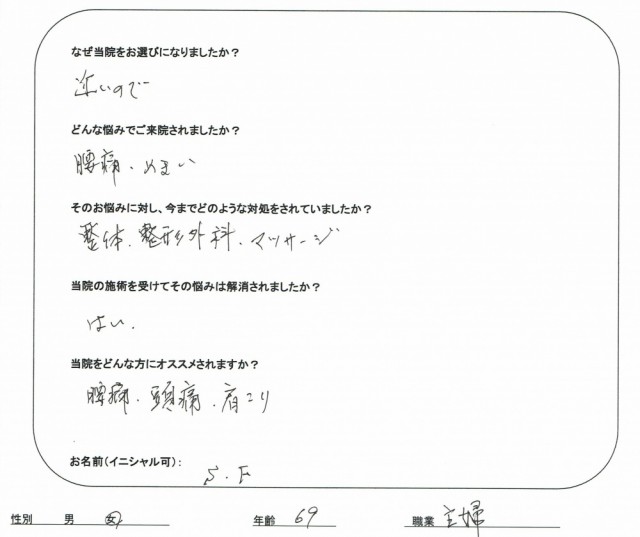 なぜ当院をお選びになりましたか？
近いので
どんな悩みでご来院されましたか？
腰痛．めまい
そのお悩みに対し、今までどのような対処をされていましたか？
整体．整形外科．マッサージ
当院の施術を受けてその悩みは解消されましたか？
はい．
当院をどんな方にオススメされますか？
腰痛．頭痛．肩こり
お名前（イニシャル可）： S．F
性別 男 女 年齢 69 職業 主婦